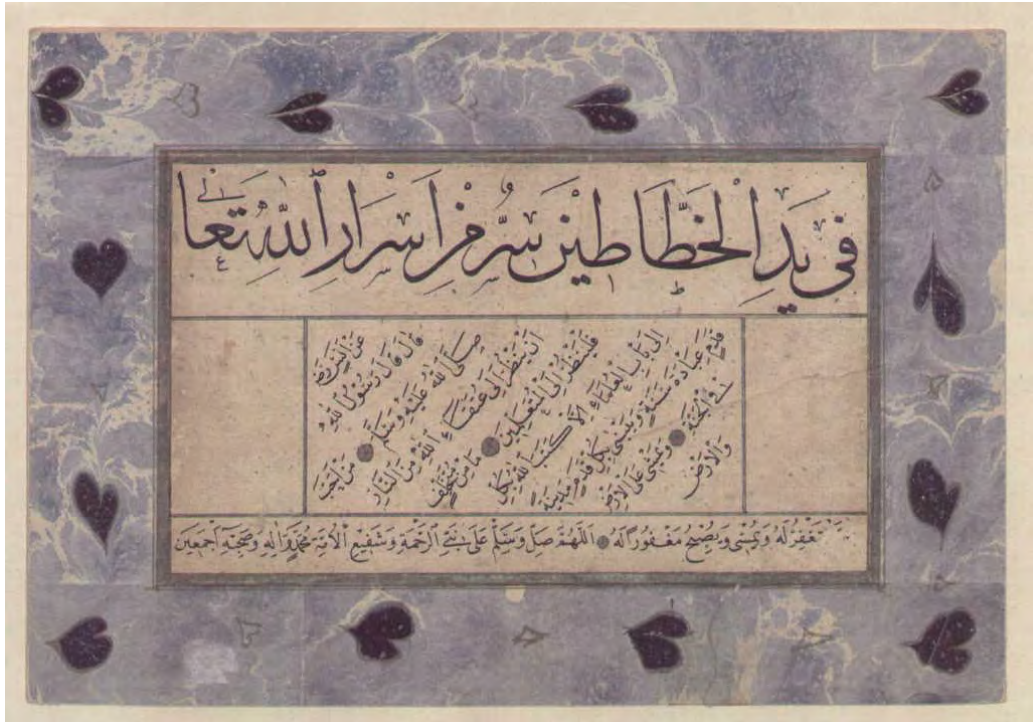 فى يد الخطاطين سر من اسرار الله تعالى
عن انس رضى
قال قال رسول الله
صلى الله عليه وسلم من احب
ان ينظر الى عتقاء الله من النار
فلينظر الى المتعلمين ما من يختلف
الى باب العلماء الا كتب الله بكل
قدم عبادة سنة وبنى بكل قدم مدينة
فى الجنة ويمشى على الارض
والارض
تستغفر له ويمسى ويصبح مغفورا له اللهم صل وسلم على نبي الرحمة وشفيع الامة محمد واله وصحبه اجمعين